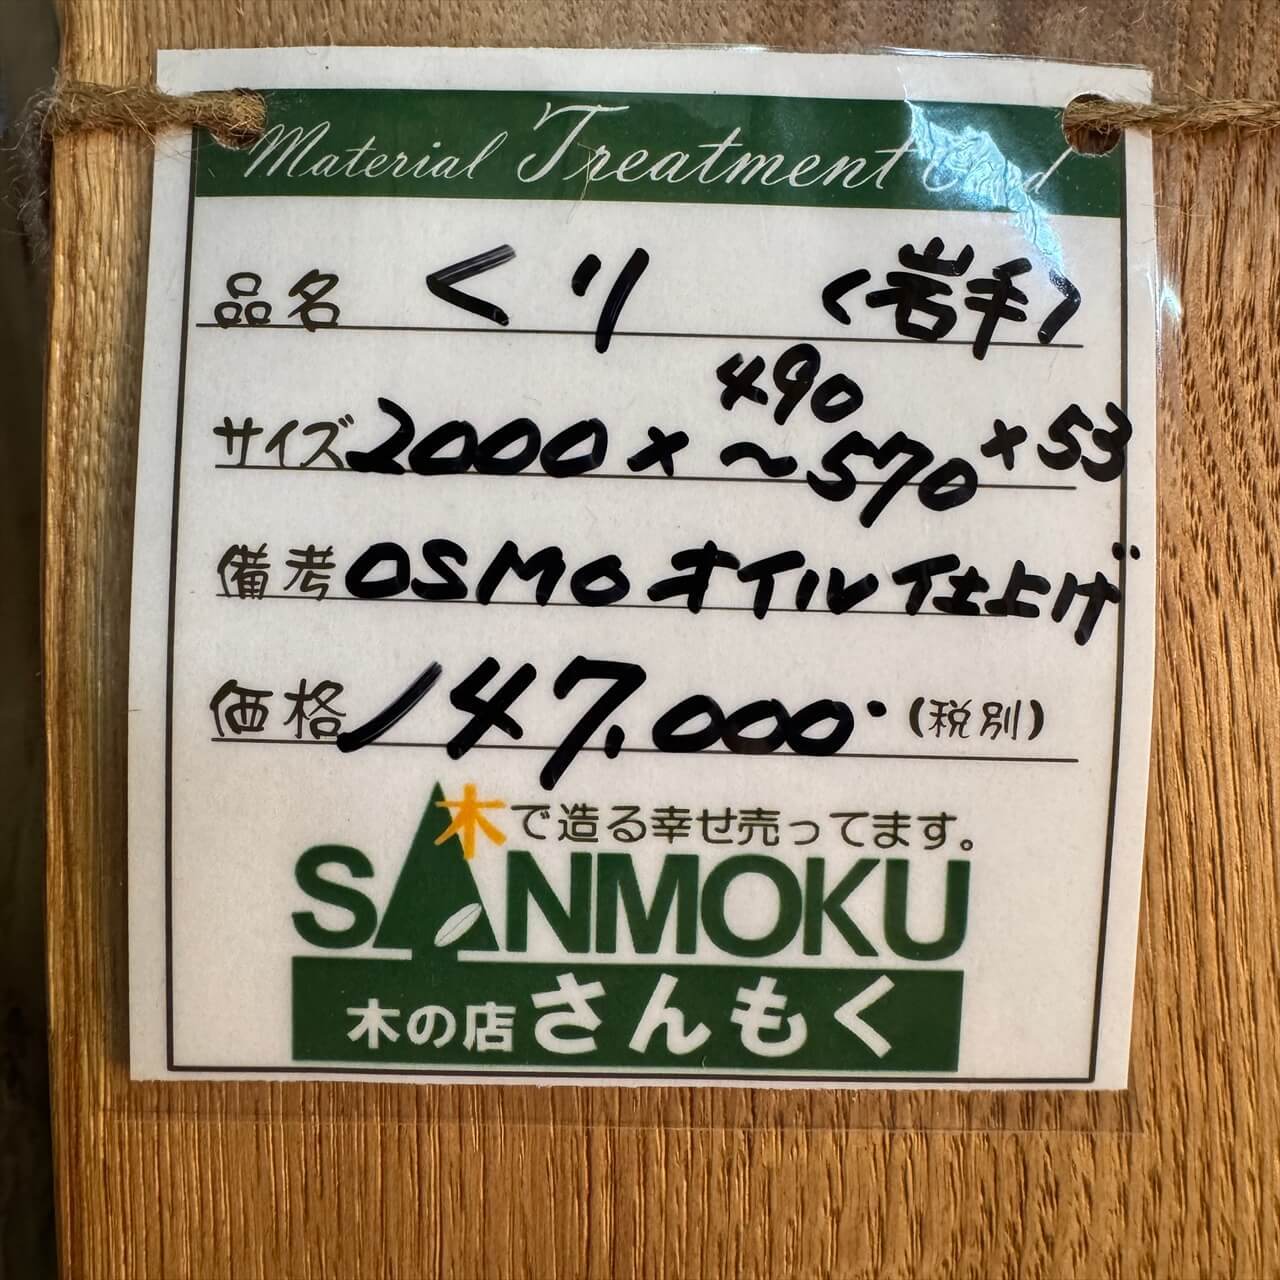 Material Treatment Card
品名 くり (岩手)
サイズ 2000 × 490～570 × 53
備考 OSMO オイル仕上げ
価格 147,000. (税別)
木で造る幸せ売ってます。
SANMOKU
木の店 さんもく